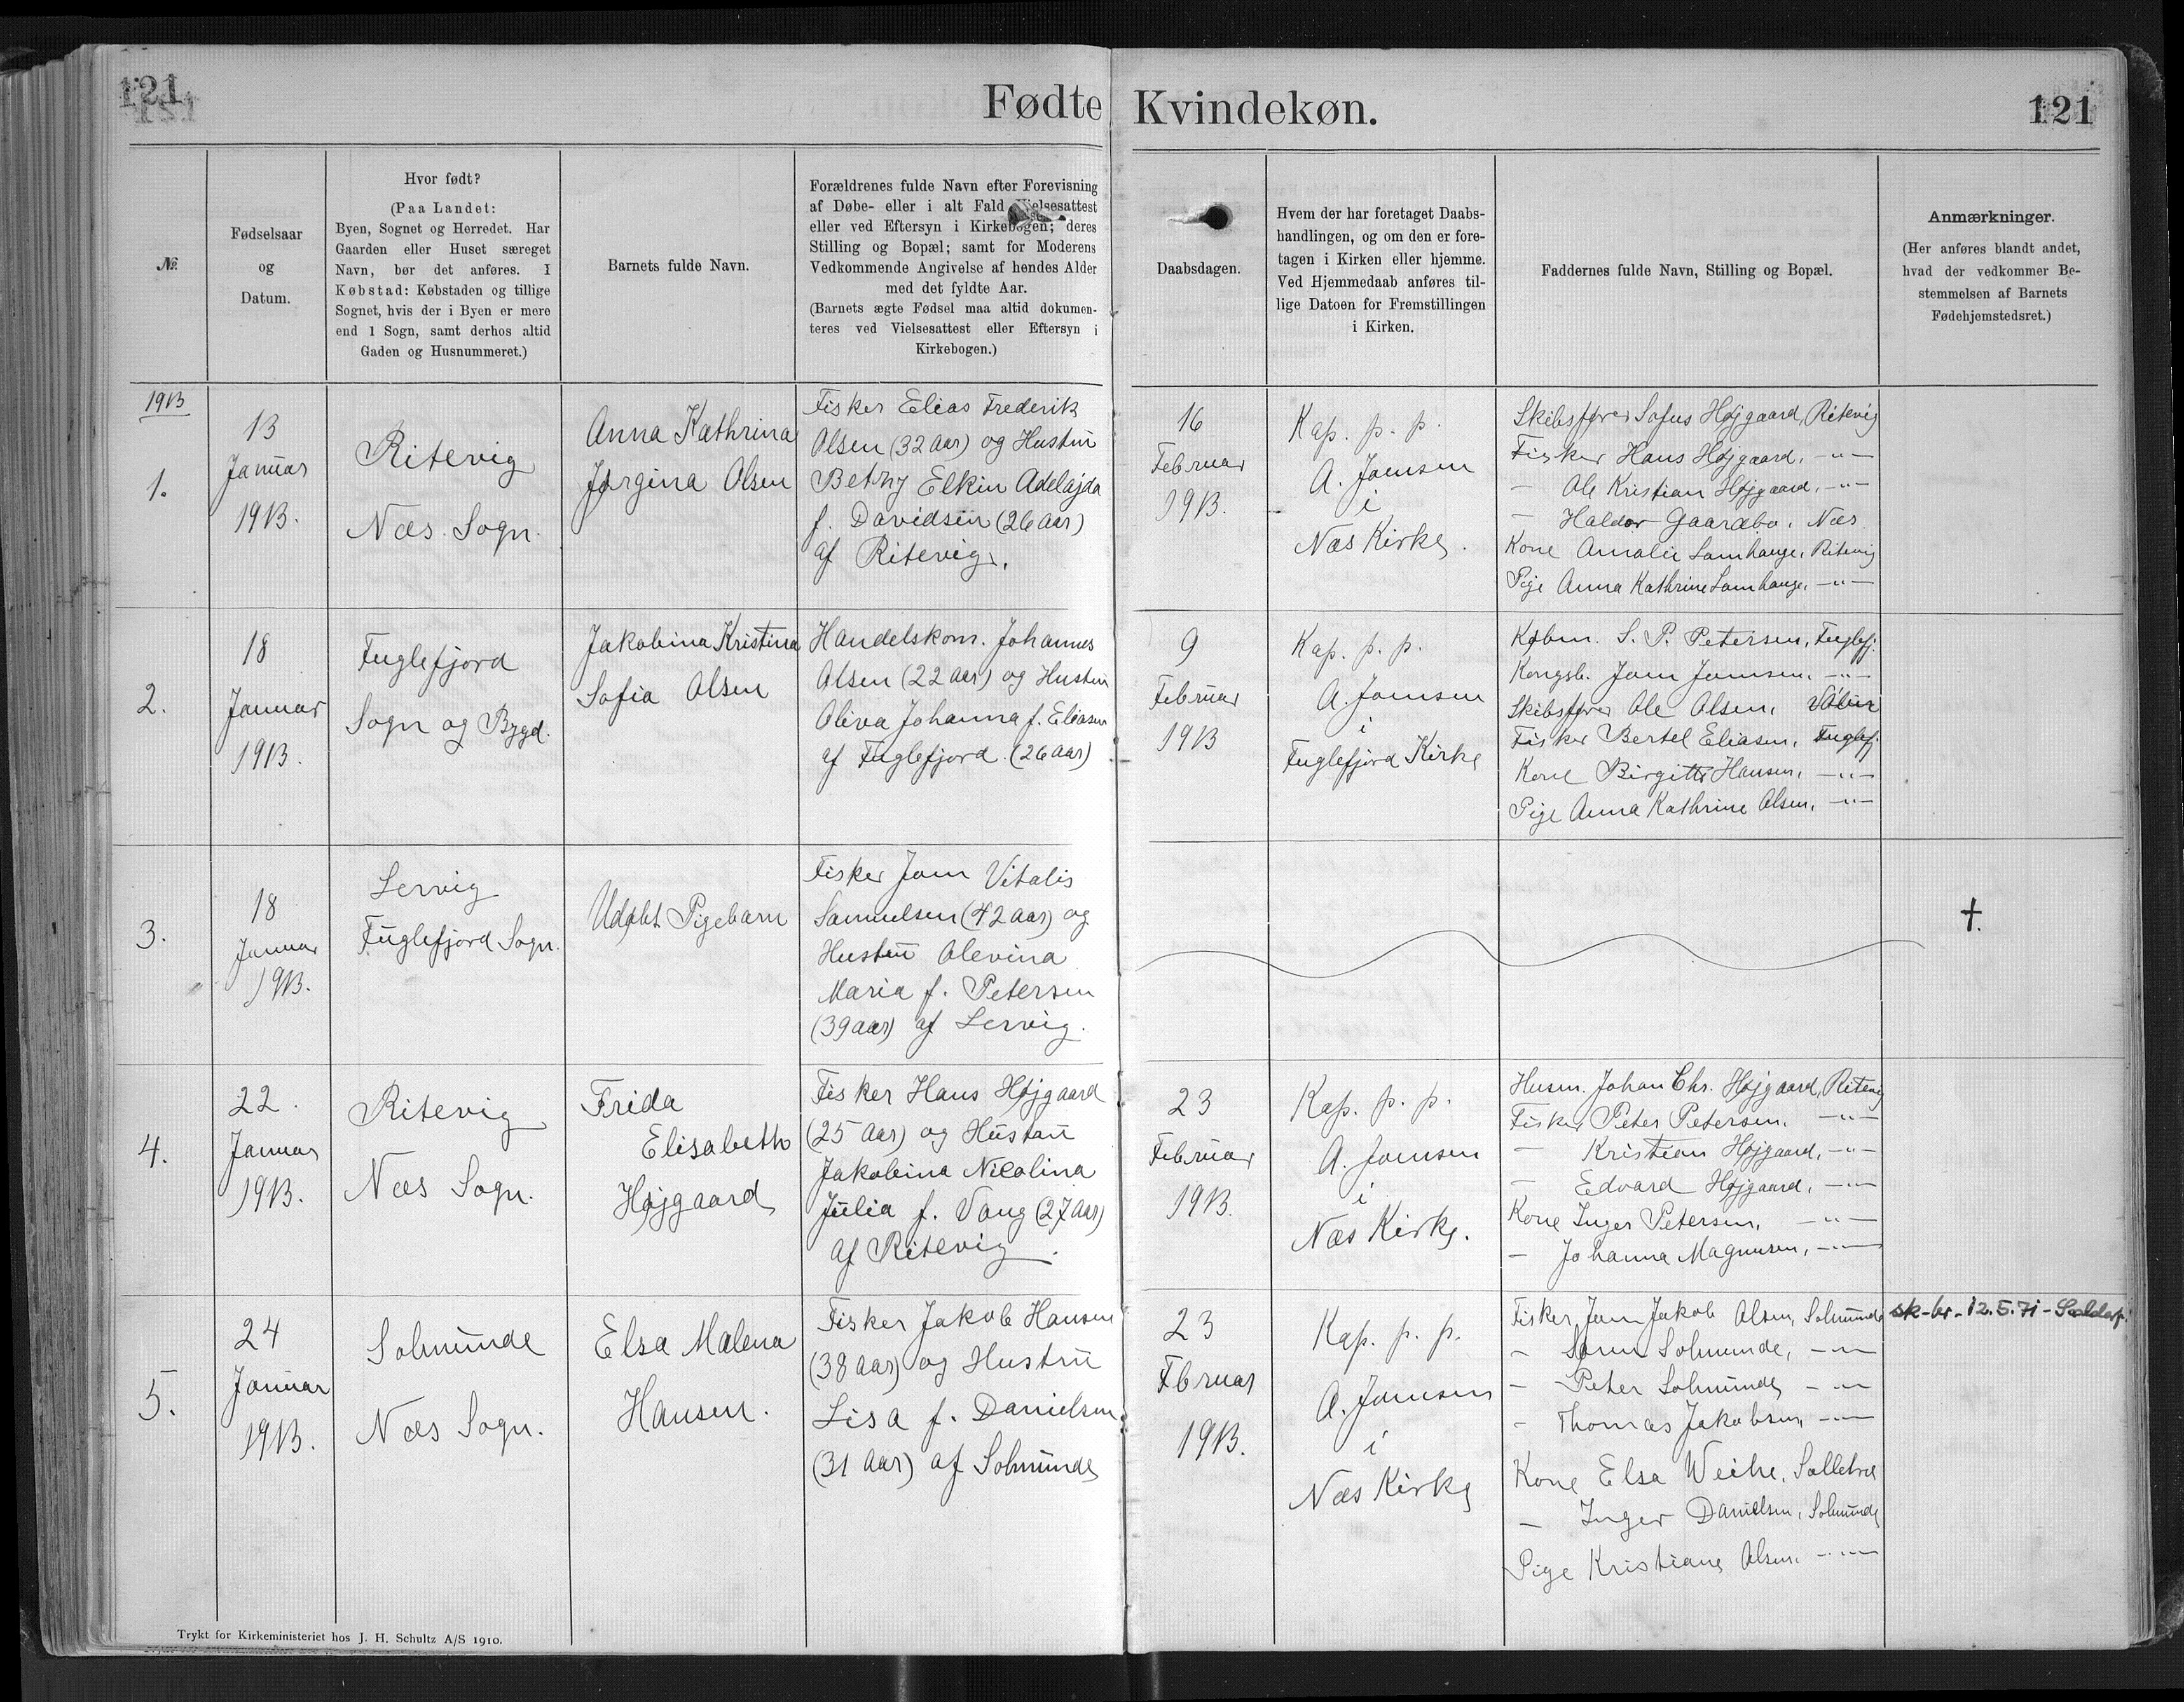 121
Fødte Kvindekøn.
121
№
Fødselsaar
og
Datum.
Hvor født?
(Paa Landet:
Byen, Sognet og Herredet. Har
Gaarden eller Huset særeget
Navn, bør det anføres. I
Købstad: Købstaden og tillige
Sognet, hvis der i Byen er mere
end 1 Sogn, samt derhos altid
Gaden og Husnummeret.)
Barnets fulde Navn.
Forældrenes fulde Navn efter Forevisning
af Døbe- eller i alt Fald Vielsesattest
eller ved Eftersyn i Kirkebogen; deres
Stilling og Bopæl; samt for Moderens
Vedkommende Angivelse af hendes Alder
med det fyldte Aar.
(Barnets ægte Fødsel maa altid dokumen-
teres ved Vielsesattest eller Eftersyn i
Kirkebogen.)
Daabsdagen.
Hvem der har foretaget Daabs-
handlingen, og om den er fore-
tagen i Kirken eller hjemme.
Ved Hjemmedaab anføres til-
lige Datoen for Fremstillingen
i Kirken.
Faddernes fulde Navn, Stilling og Bopæl.
Anmærkninger.
(Her anføres blandt andet,
hvad der vedkommer Be-
stemmelsen af Barnets
Fødehjemstedsret.)
1913
1.
13
Januar
1913.
Ritevig
Næs Sogn.
Anna Kathrina
Jørgina Olsen
Fisker Elias Frederik
Olsen (32 Aar) og Hustru
Betzy Elkin Adelajda
f. Davidsen (26 Aar)
af Ritevig.
16
Februar
1913.
Kap. p. p.
A. Joensen
i
Næs Kirke.
Skibsfører Sofus Højgaard, Ritevig
Fisker Hans Højgaard, -"-
- Ole Kristian Højgaard, -"-
- Haldor Gaardbo, Næs
Kone Amalie Lamhauge, Ritevig
Pige Anna Kathrine Lamhauge, -"-
2.
18
Januar
1913.
Fuglefjord
Sogn og Bygd.
Jakobina Kristina
Sofia Olsen
Handelskom. Johannes
Olsen (22 Aar) og Hustru
Oliva Johanna f. Eliasen
af Fuglefjord. (26 Aar)
9
Februar
1913
Kap. p. p.
A. Joensen
i
Fuglefjord Kirke
Købm. S. P. Petersen, Fuglefj.
Kongsb. Joen Joensen, -"-
Skibsfører Ole Olsen,
Fisker Bertel Eliasen, Fuglefj.
Kone Birgitte Hansen, -"-
Pige Anna Kathrine Olsen, -"-
3.
18
Januar
1913.
Lervig
Fuglefjord Sogn.
Udøbt Pigebarn
Fisker Joen Vitalis
Samuelsen (42 Aar) og
Hustru Olevina
Maria f. Petersen
(39 Aar) af Lervig.
†.
4.
22.
Januar
1913.
Ritevig
Næs Sogn.
Frida
Elisabeth
Højgaard
Fisker Hans Højgaard
(25 Aar) og Hustru
Jakobina Nicolina
Julia f. Vang (27 Aar)
af Ritevig.
23
Februar
1913.
Kap. p. p.
A. Joensen
i
Næs Kirke.
Husm. Johan Chr. Højgaard, Ritevig
Fisker Peter Petersen, -"-
- Kristian Højgaard, -"-
- Edvard Højgaard, -"-
Kone Inger Petersen, -"-
- Johanna Magnusen, -"-
5.
24
Januar
1913.
Solmunde
Næs Sogn.
Elsa Malena
Hansen.
Fisker Jakob Hansen
(38 Aar) og Hustru
Lisa f. Danielsen
(31 Aar) af Solmunde
23
Fbruar
1913.
Kap. p. p.
A. Joensen
i
Næs Kirke
Fisker Joen Jakob Olsen, Solmunde
- Søren Solmunde, -"-
- Peter Solmunde -"-
- Thomas Jakobsen, -"-
Kone Elsa Weihe,
- Inger Danielsen, Solmunde
Pige Kristiane Olsen, -"-
sk-br-12.5.71-
Trykt for Kirkeministeriet hos J. H. Schultz A/S 1910.